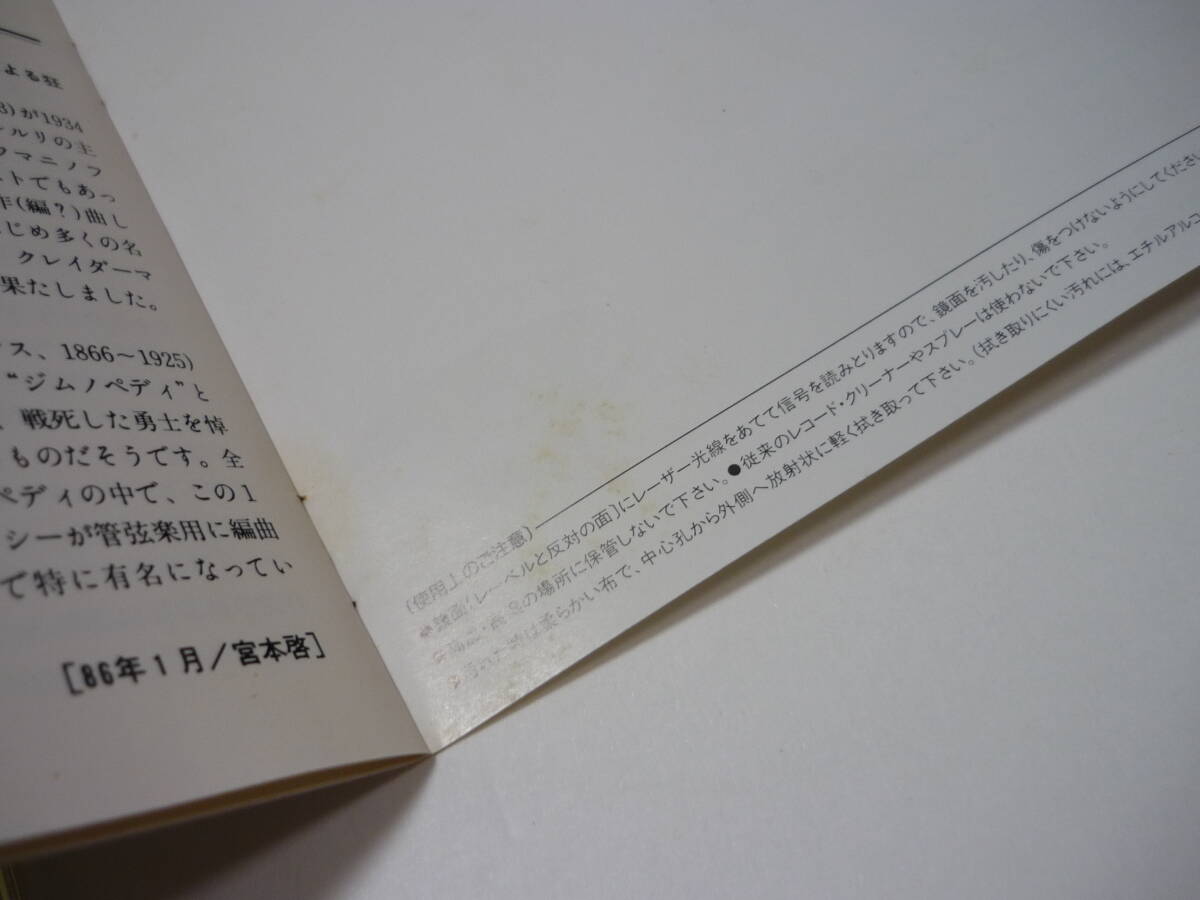 よる狂
3)が1934
ルリの主
フマニノフ
ストでもあっ
作(編?)曲し
じめ多くの名
クレイダーマ
果たしました。
ス、1866〜1925)
“ジムノペディ”と
、戦死した勇士を悼
ものだそうです。全
ペディの中で、この1
シーが管弦楽用に編曲
で特に有名になってい
[86年1月/宮本啓]
(使用上のご注意)
鏡面[レーベルと反対の面]にレーザー光線をあてて信号を読みとりますので、鏡面を汚したり、傷をつけないようにしてください
の場所に保管しないで下さい。●従来のレコード・クリーナーやスプレーは使わないで下さい。
は柔らかい布で、中心孔から外側へ放射状に軽く拭き取って下さい。(拭き取りにくい汚れには、エチルアルコ